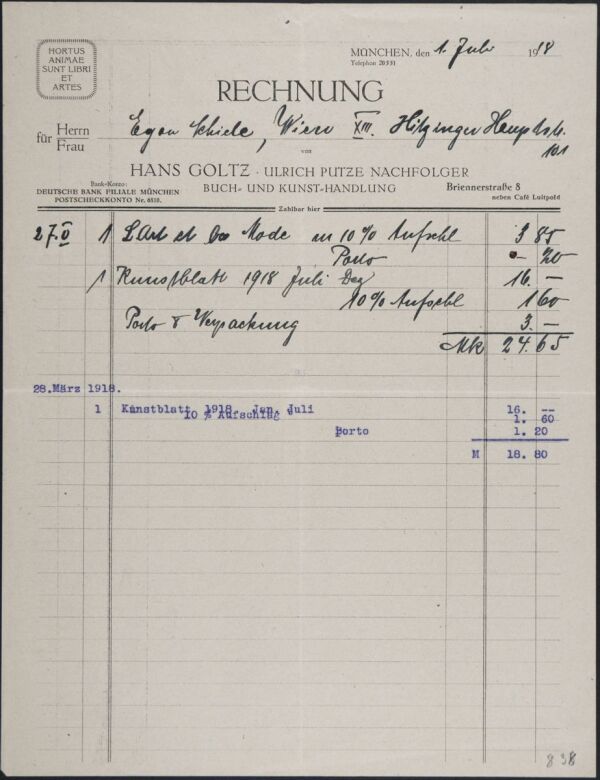 HORTUS
ANIMAE
SUNT LIBRI
ET
ARTES
MÜNCHEN, den 1. Juli 1918
Telephon 20331
RECHNUNG
für Herrn Frau Egon Schiele, Wien XIII. Hitzinger Hauptstr.
101
von
HANS GOLTZ · ULRICH PUTZE NACHFOLGER
BUCH- UND KUNST-HANDLUNG
Bank-Konto:
DEUTSCHE BANK FILIALE MÜNCHEN
POSTSCHECKKONTO Nr. 6810.
Briennerstraße 8
neben Café Luitpold
Zahlbar hier
27. 1 L'Art et la Mode m 10% Aufschl 3 85
Porto - 20
1 Kunstblatt 1918 Juli Dez 16. —
10% Aufschl 1 60
Porto & Verpackung 3. —
Mk 24. 65
28.März 1918.
1 Kunstblatt 1918. Jan. Juli 16. --
10 % Aufschlag 1. 60
Porto 1. 20
M 18. 80
838